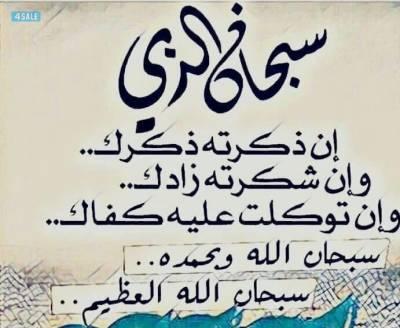 4SALE
سبحان الذي
إن ذكرته ذكرك..
وإن شكرته زادك..
وإن توكلت عليه كفاك..
سبحان الله وبحمده..
سبحان الله العظيم..